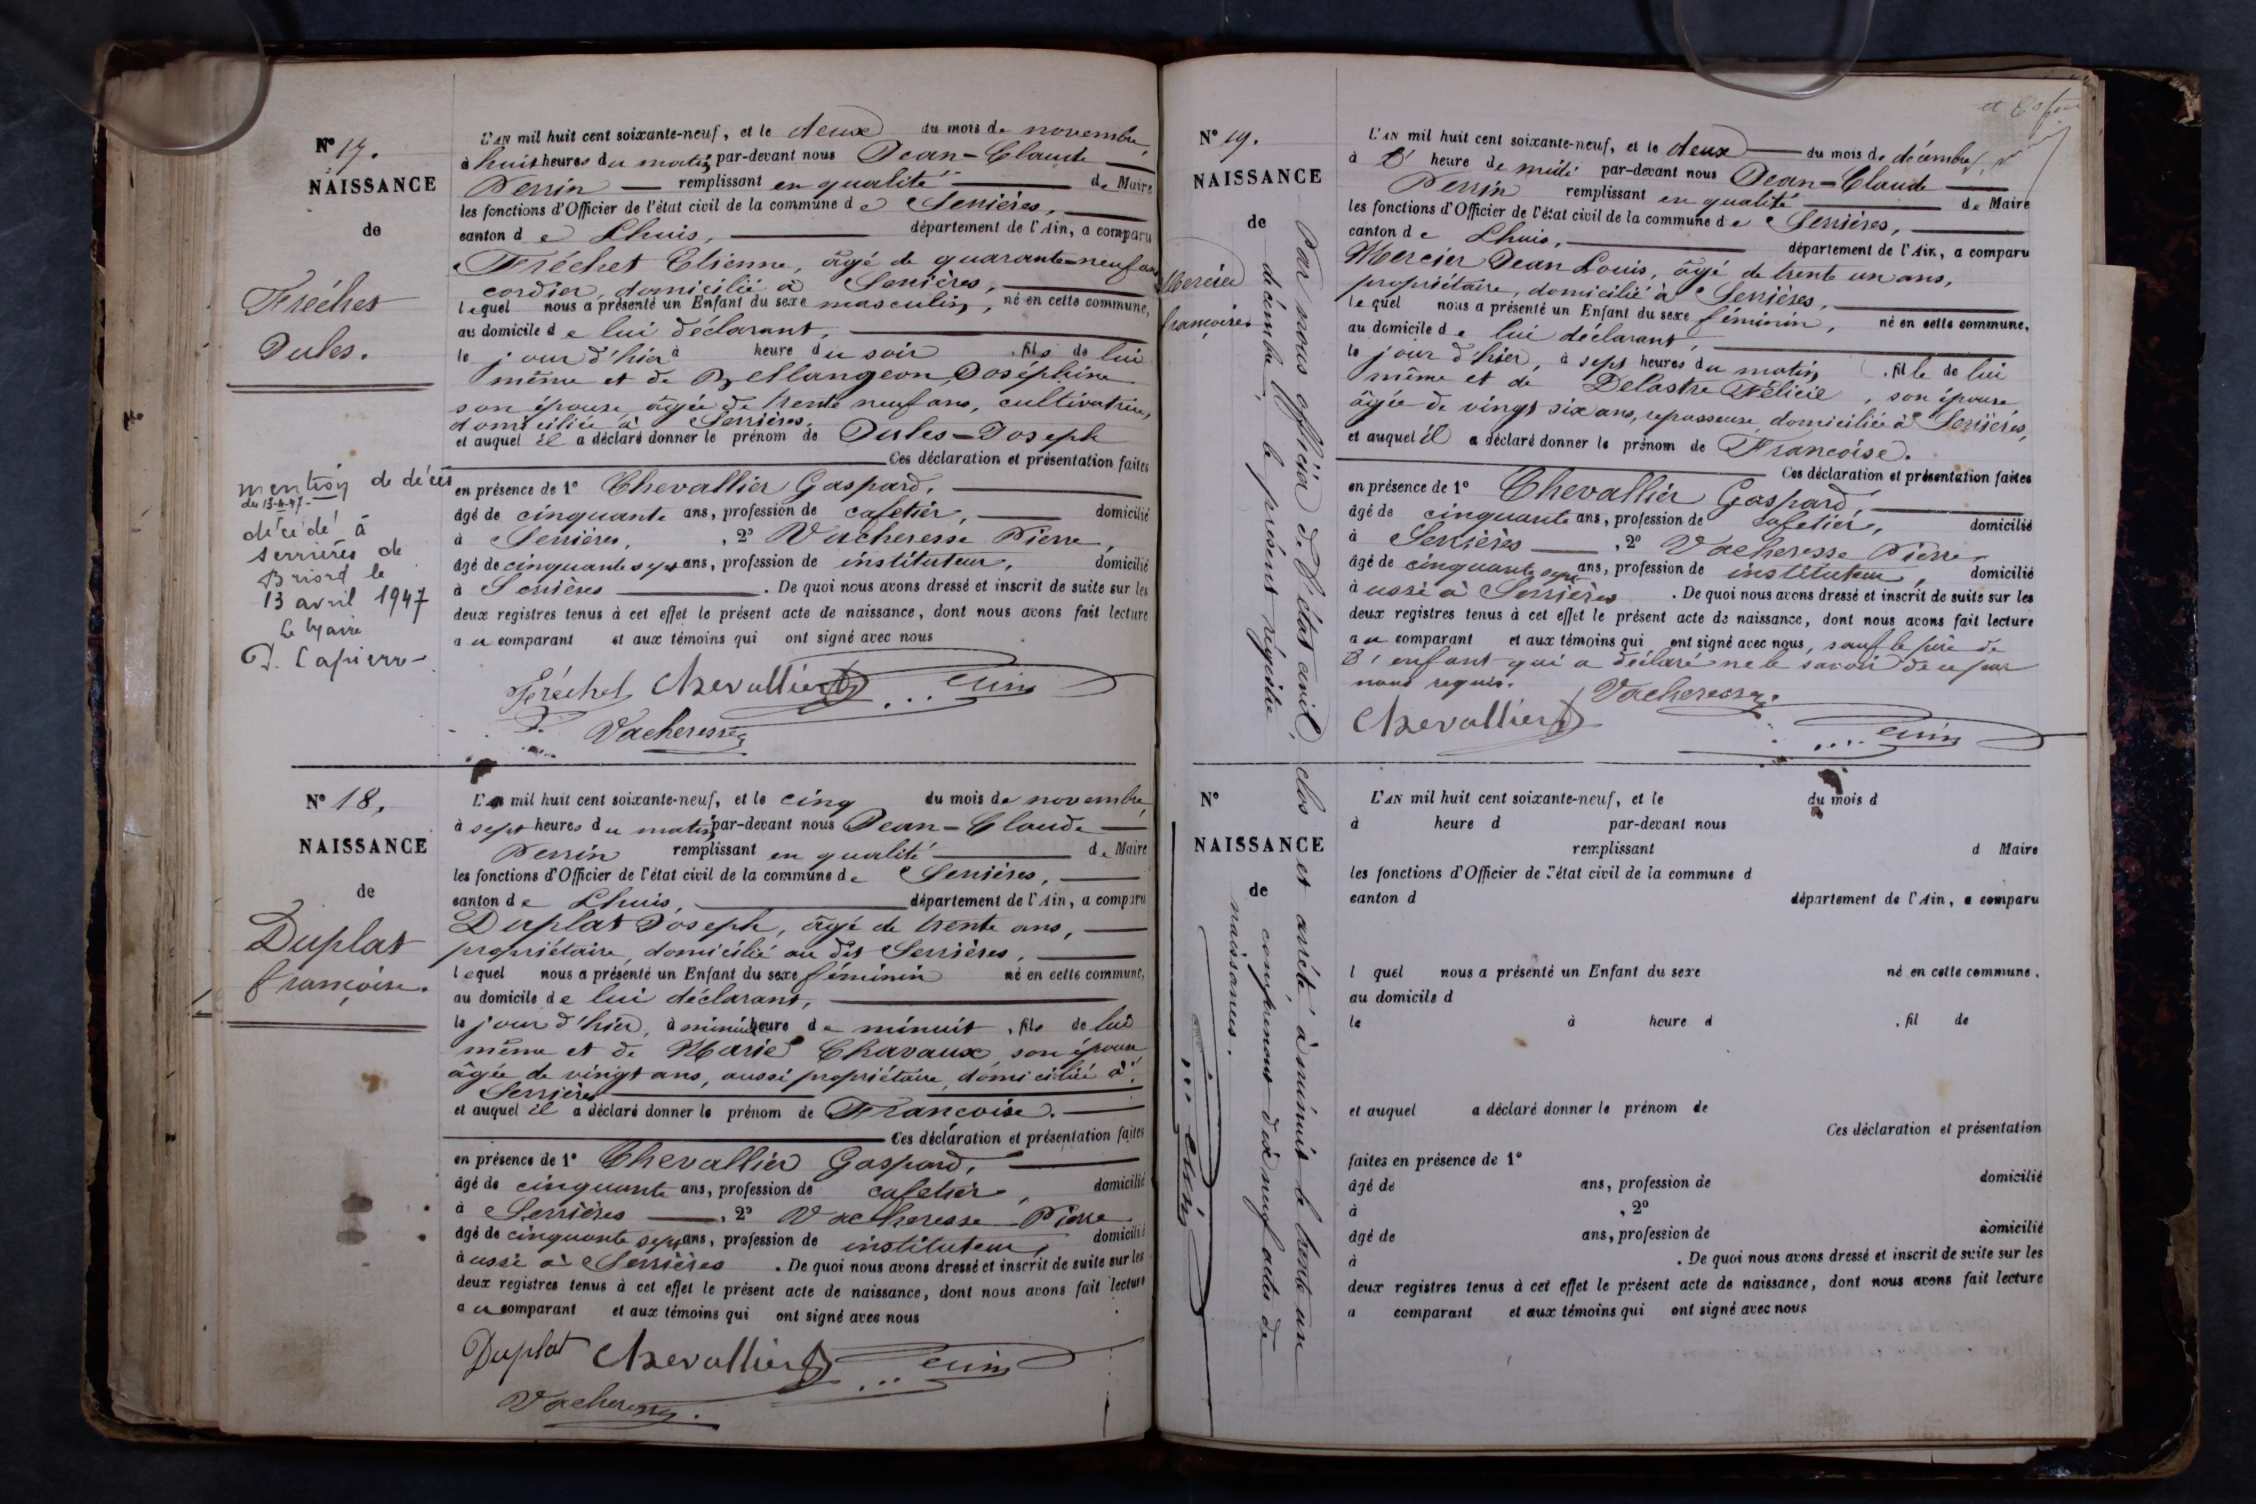 N° 17.
NAISSANCE
de
Fréchet
Jules.
mention de décès
du 13-4-47-
décédé à
serrières de
Briord le
13 avril 1947
Le Maire
L'AN mil huit cent soixante-neuf, et le deux du mois de novembre,
à huit heures du matin, par-devant nous Jean-Claude
Perrin remplissant en qualité de Maire
les fonctions d'Officier de l'état civil de la commune de Serrières,
canton de Lhuis, département de l'Ain, a comparu
Fréchet Etienne, âgé de quarante-neuf ans
cordier, domicilié à Serrières,
lequel nous a présenté un Enfant du sexe masculin, né en cette commune,
au domicile de lui déclarant,
le jour d'hier à heure du soir, fils de lui
même et de Bellangeon Joséphine
son épouse âgée de trente neuf ans, cultivatrice,
domiciliée à Serrières.
et auquel il a déclaré donner le prénom de Jules-Joseph
Ces déclaration et présentation faites
en présence de 1° Chevallier Gaspard,
âgé de cinquante ans, profession de cafetier, domicilié
à Serrières, , 2° Vacheresse Pierre,
âgé de cinquante sept ans, profession de instituteur, domicilié
à Serrières . De quoi nous avons dressé et inscrit de suite sur les
deux registres tenus à cet effet le présent acte de naissance, dont nous avons fait lecture
au comparant et aux témoins qui ont signé avec nous
Fréchet Chevallier Perrin
Vacheresse
N° 18.
NAISSANCE
de
Duplat
françoise.
L'AN mil huit cent soixante-neuf, et le cinq du mois de novembre,
à sept heures du matin, par-devant nous Jean-Claude
Perrin remplissant en qualité de Maire
les fonctions d'Officier de l'état civil de la commune de Serrières,
canton de Lhuis, département de l'Ain, a comparu
Duplat Joseph, âgé de trente ans,
propriétaire, domicilié au dit Serrières,
lequel nous a présenté un Enfant du sexe féminin né en cette commune,
au domicile de lui déclarant,
le jour d'hier, à minuit heure de minuit, fils de lui
même et de Marie Chavaux, son épouse
âgée de vingt ans, aussi propriétaire, domiciliée à
Serrières
et auquel il a déclaré donner le prénom de Francoise.
Ces déclaration et présentation faites
en présence de 1° Chevallier Gaspard,
âgé de cinquante ans, profession de cafetier, domicilié
à Serrières , 2° Vacheresse Pierre
âgé de cinquante sept ans, profession de instituteur, domicilié
aussi à Serrières . De quoi nous avons dressé et inscrit de suite sur les
deux registres tenus à cet effet le présent acte de naissance, dont nous avons fait lecture
au comparant et aux témoins qui ont signé avec nous
Duplat Chevallier Perrin
Vacheresse.
N° 19.
NAISSANCE
de
Mercier
françoise.
L'AN mil huit cent soixante-neuf, et le deux du mois de décembre,
à l' heure de midi par-devant nous Jean-Claude
Perrin remplissant en qualité de Maire
les fonctions d'Officier de l'état civil de la commune de Serrières,
canton de Lhuis, département de l'Ain, a comparu
Mercier Jean Louis, âgé de trente un ans,
propriétaire, domicilié à Serrières,
lequel nous a présenté un Enfant du sexe féminin, né en cette commune,
au domicile de lui déclarant,
le jour d'hier, à sept heures du matin, fille de lui
même et de Delastre Félicie, son épouse
âgée de vingt six ans, repasseuse, domiciliée à Serrières,
et auquel il a déclaré donner le prénom de Francoise.
Ces déclaration et présentation faites
en présence de 1° Chevallier Gaspard,
âgé de cinquante ans, profession de cafetier, domicilié
à Serrières , 2° Vacheresse Pierre,
âgé de cinquante sept ans, profession de instituteur, domicilié
aussi à Serrières . De quoi nous avons dressé et inscrit de suite sur les
deux registres tenus à cet effet le présent acte de naissance, dont nous avons fait lecture
au comparant et aux témoins qui ont signé avec nous, sauf le père de
l'enfant qui a déclaré ne le savoir de ce par
nous requis.
Vacheresse.
Chevallier Perrin
Par nous officier de l'état civil, clos et arrêté, à minuit le trente un
décembre, le présent régistre comprenant dix neuf actes de
naissances.
Perrin
N°
NAISSANCE
de
L'AN mil huit cent soixante-neuf, et le du mois d
à heure d par-devant nous
remplissant d Maire
les fonctions d'Officier de l'état civil de la commune d
canton d département de l'Ain, a comparu
l quel nous a présenté un Enfant du sexe né en cette commune.
au domicile d
le à heure d , fil de
et auquel a déclaré donner le prénom de
Ces déclaration et présentation
faites en présence de 1°
âgé de ans, profession de domicilié
à , 2°
âgé de ans, profession de domicilié
à . De quoi nous avons dressé et inscrit de suite sur les
deux registres tenus à cet effet le présent acte de naissance, dont nous avons fait lecture
a comparant et aux témoins qui ont signé avec nous